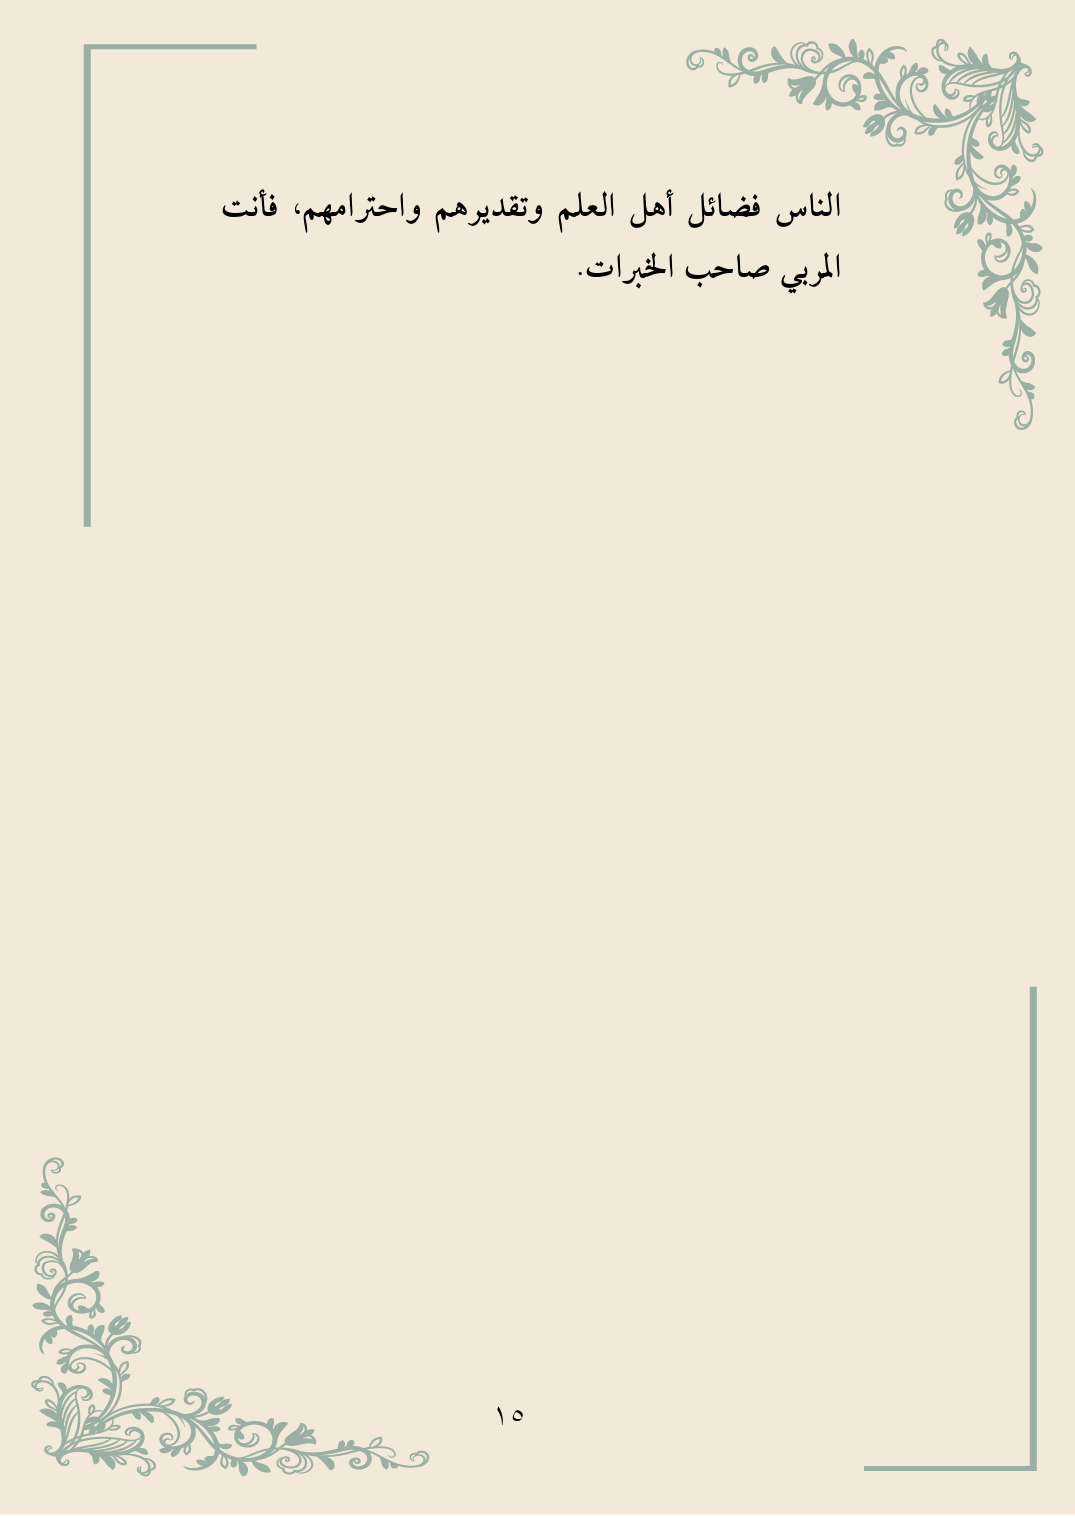 الناس فضائل أهل العلم وتقديرهم واحترامهم، فأنت
المربي صاحب الخبرات.
١٥